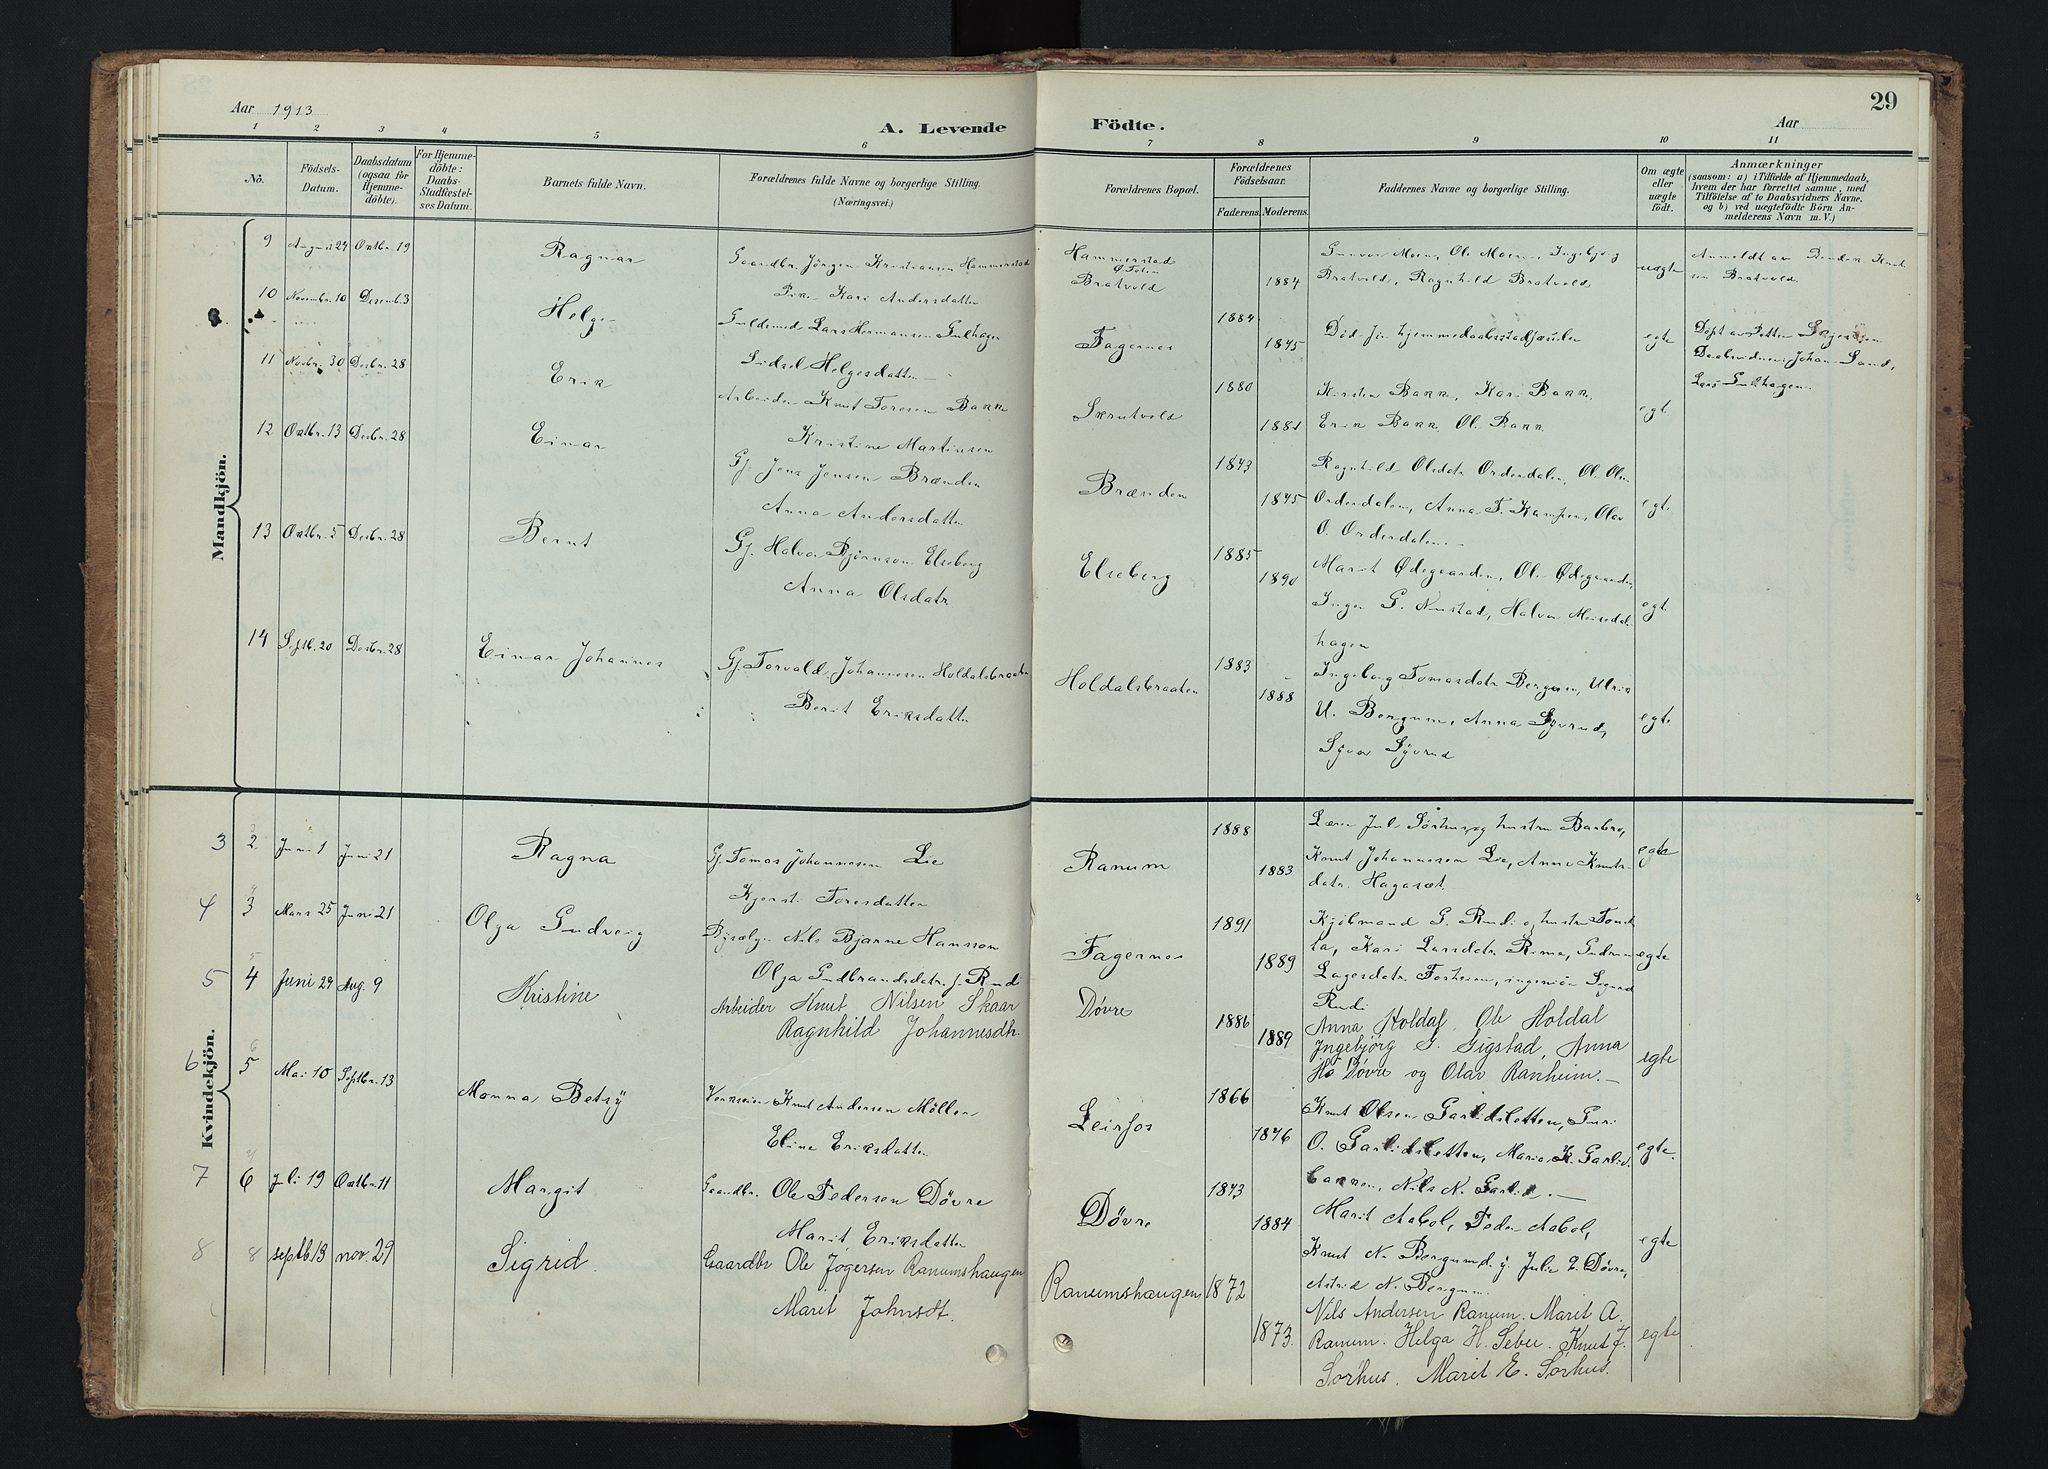 Aar 1913
A. Levende
Födte.
Aar
29
1 2 3 4 5 6 7 8 9 10 11
Nö.
Födsels-
Datum.
Daabsdatum
(ogsaa for
Hjemme-
döbte).
For Hjemme-
döbte:
Daabs-
Stadfæstel-
ses Datum.
Barnets fulde Navn.
Forældrenes fulde Navne og borgerlige Stilling.
(Næringsvei.)
Forældrenes Bopæl.
Forældrenes
Födselsaar.
Faderens. Moderens.
Faddernes Navne og borgerlige Stilling.
Om ægte
eller
uægte
födt.
Anmærkninger
(saasom: a) i Tilfælde af Hjemmedaab,
hvem der har forrettet samme, med
Tilföielse af to Daabsvidners Navne.
og b) ved uægtefödte Börn An-
melderens Navn m. V.)
Mandkjön.
9 August 24 Oktbr. 19 Ragnar Gaardbr. Jörgen Kristiansen Hammerstad Hammerstad
Ø. Toten
Pike Kari Andersdatter Bratvold 1884
Gunvor Moen, Ole Moen, Ingebjørg
Bratvold, Ragnhild Bratvold
uegte
Anmeldt av Knut
Bratvold
10 Novembr. 10 Desemb. 3 Helge Guldsmed Lars Hermansen Gulhagen
Sidsel Helgesdatter Fagernes 1884 1845
Död før hjemmedaabsstadfæstelse
egte
Døpt av Petter
Daabsvidner: Johan Sand,
Lars Gulhagen.
11 Novbr. 30 Desbr. 28 Erik Arbeider Knut Toresen Bakke
Kristine Martinsen Skrutvold 1880 1881
Kirsten Bakk, Kari Bakk,
Erik Bakk, Ole Bakk
egt.
12 Oktbr. 13 Desbr. 28 Einar Gj. Jens Jensen Brænden
Anna Andersdatter Brænden 1843 1845
Ragnhild Olsdatr. Orderdalen, Ole Olsn
Orderdalen, Anna T. Kampen, Olav
O. Orderdalen.
egte
13 Oktbr. 5 Desbr. 28 Bernt Gj. Halvor Bjørnson Elseberg
Anna Olsdatr. Elseberg 1885 1890
Marit Ødegaarden, Ole Ødegaarden,
Inger G. Halvor
hagen
egt.
14 Septb. 20 Desbr. 28 Einar Johannes Gj. Torvald Johannesen Holdalsbraaten
Berit Eriksdatter Holdalsbraaten 1883 1888
Ingeborg Tomasdatr. Bergum, Ulrik
U. Bergum, Anna Syvrud,
Syver Syvrud
egte
Kvindekjön.
3 2 Juni 1 Juni 21 Ragna Gj. Tomas Johannesen Lie
Kjersti Toresdatter Ranum 1888 1883
Lærer Jul. Sørhus og hustru Barbro,
Knut Johannesen Lie, Anne Knuts-
datr. Hagaset
egte
4 3 Mars 25 Juni 21 Olga Gudveig Nils Bjarne Hansson
Olga Gudbrandsdatr. f. Rudi Fagernes 1891 1889
Kjøbmand G. Rudi og hustru
Kari Larsdatr. Rime, Gudrun
Lagesdatr. Forheim, ingeniør Sigurd
Rudi
egte
5 4 Juni 29 Aug. 9 Kristine Arbeider Knut Nilsen Skaar
Ragnhild Johannesdtr. Døvre 1886 1889
Anna Holdal, Ole Holdal
Ingebjørg G. Gigstad, Anna
Ho Døvre og Olav Ranheim.
egte
6 5 Mai 10 Septbr. 13 Monna Betsy Verkseier Knut Andersen Möller
Eline Eriksdatter Leirfos 1866 1876
Knut Olsen Garlidsletten, Guri
O. Garlidsletten, Maria K. Garlid-
bakken, Nils N. Garlid.
egte.
7 6 Juli 19 Oktbr. 11 Margit Gaardbr. Ole Pedersen Døvre
Marit Eriksdatter Døvre 1873 1884
Marit Aabol, Peder Aabol,
Knut N. Bergum d. y. Julie P. Døvre,
Astrid N. Bergum
egte
8 8 septb. 13 nov. 29 Sigrid. Gaardbr. Ole Jøgersen Ranumshaugen
Marit Johnsdt. Ranumshaugen 1872 1873.
Nils Andersen Ranum. Marit A.
Ranum. Helga H. Sebu. Knut J.
Sørhus. Marit E. Sørhus.
egte